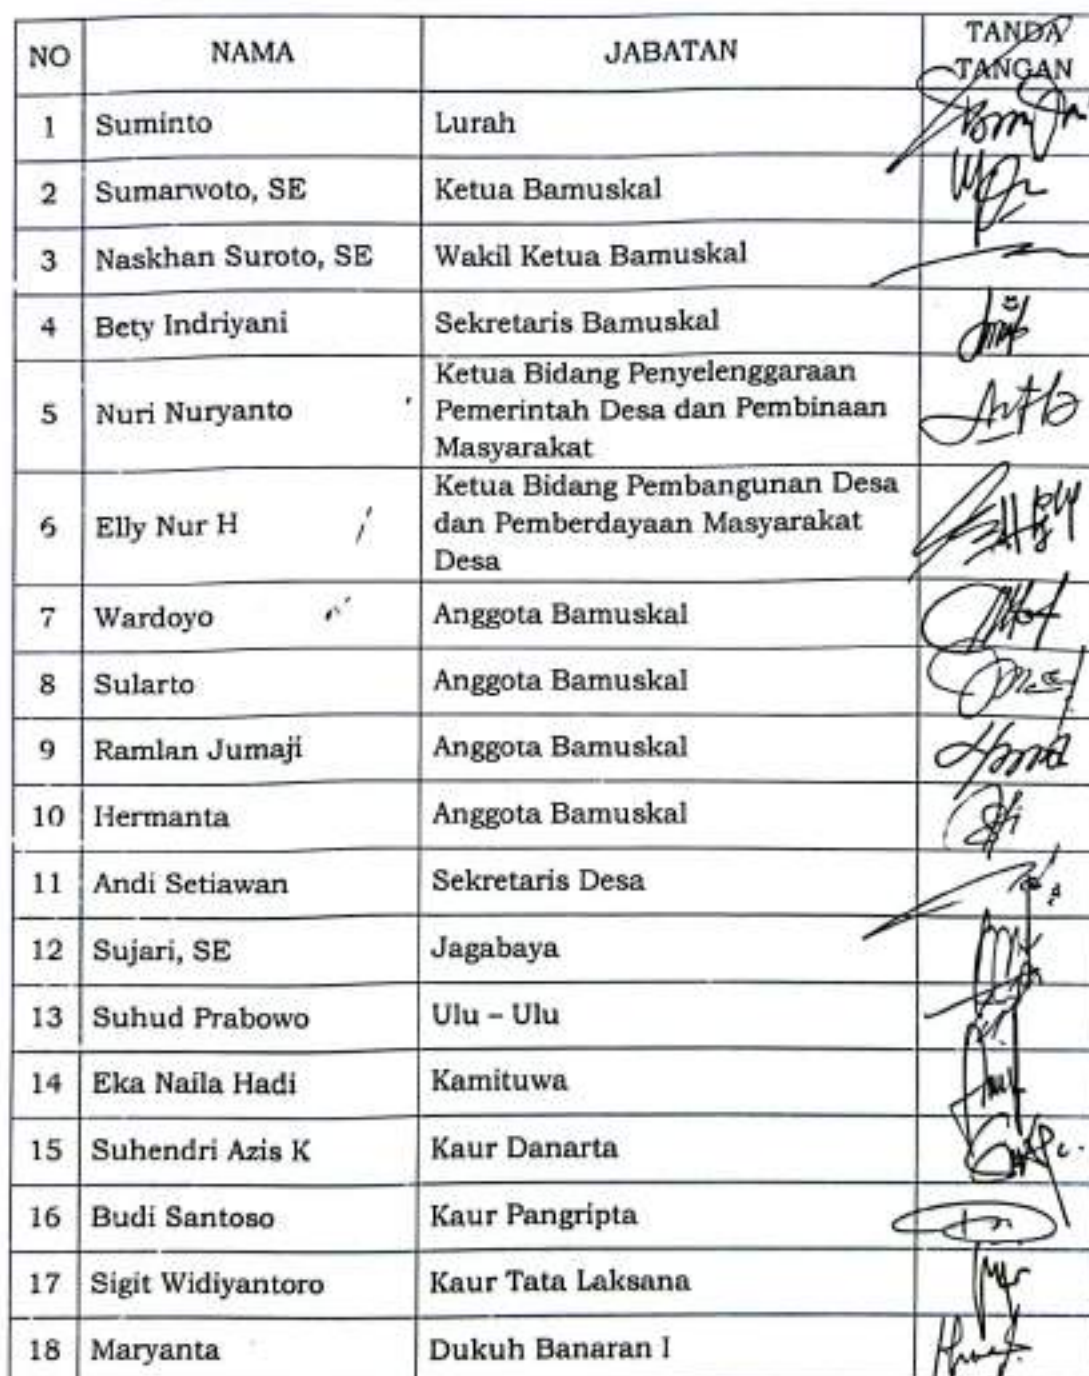 NO NAMA JABATAN TANDA
TANGAN
1 Suminto Lurah
2 Sumarwoto, SE Ketua Bamuskal
3 Naskhan Suroto, SE Wakil Ketua Bamuskal
4 Bety Indriyani Sekretaris Bamuskal
5 Nuri Nuryanto Ketua Bidang Penyelenggaraan
Pemerintah Desa dan Pembinaan
Masyarakat
6 Elly Nur H Ketua Bidang Pembangunan Desa
dan Pemberdayaan Masyarakat
Desa
7 Wardoyo Anggota Bamuskal
8 Sularto Anggota Bamuskal
9 Ramlan Jumaji Anggota Bamuskal
10 Hermanta Anggota Bamuskal
11 Andi Setiawan Sekretaris Desa
12 Sujari, SE Jagabaya
13 Suhud Prabowo Ulu – Ulu
14 Eka Naila Hadi Kamituwa
15 Suhendri Azis K Kaur Danarta
16 Budi Santoso Kaur Pangripta
17 Sigit Widiyantoro Kaur Tata Laksana
18 Maryanta Dukuh Banaran I